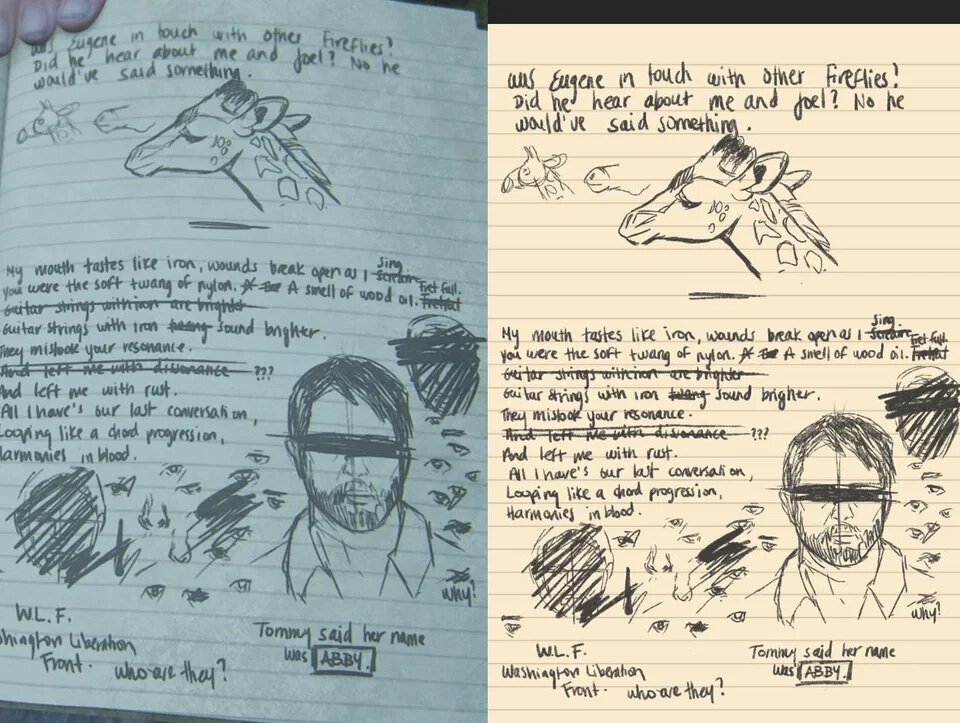 was Eugene in touch with other Fireflies?
Did he hear about me and Joel? No he
would've said something.
My mouth tastes like iron, wounds break open as I scream sing
You were the soft twang of nylon. A smell of wood oil. Fretful Fret full.
Guitar strings with iron are brighter
Guitar strings with iron twang sound brighter.
They mistook your resonance.
And left me with dissonance ???
And left me with rust.
All I have's our last conversation,
Looping like a chord progression,
Harmonies in blood.
why?
W.L.F.
Washington Liberation
Front. who are they?
Tommy said her name
was ABBY.
was Eugene in touch with other Fireflies?
Did he hear about me and Joel? No he
would've said something.
My mouth tastes like iron, wounds break open as I scream sing
You were the soft twang of nylon. A smell of wood oil. Fretful Fret full.
Guitar strings with iron are brighter
Guitar strings with iron twang sound brighter.
They mistook your resonance.
And left me with dissonance ???
And left me with rust.
All I have's our last conversation,
Looping like a chord progression,
Harmonies in blood.
why?
W.L.F.
Washington Liberation
Front. who are they?
Tommy said her name
was ABBY.